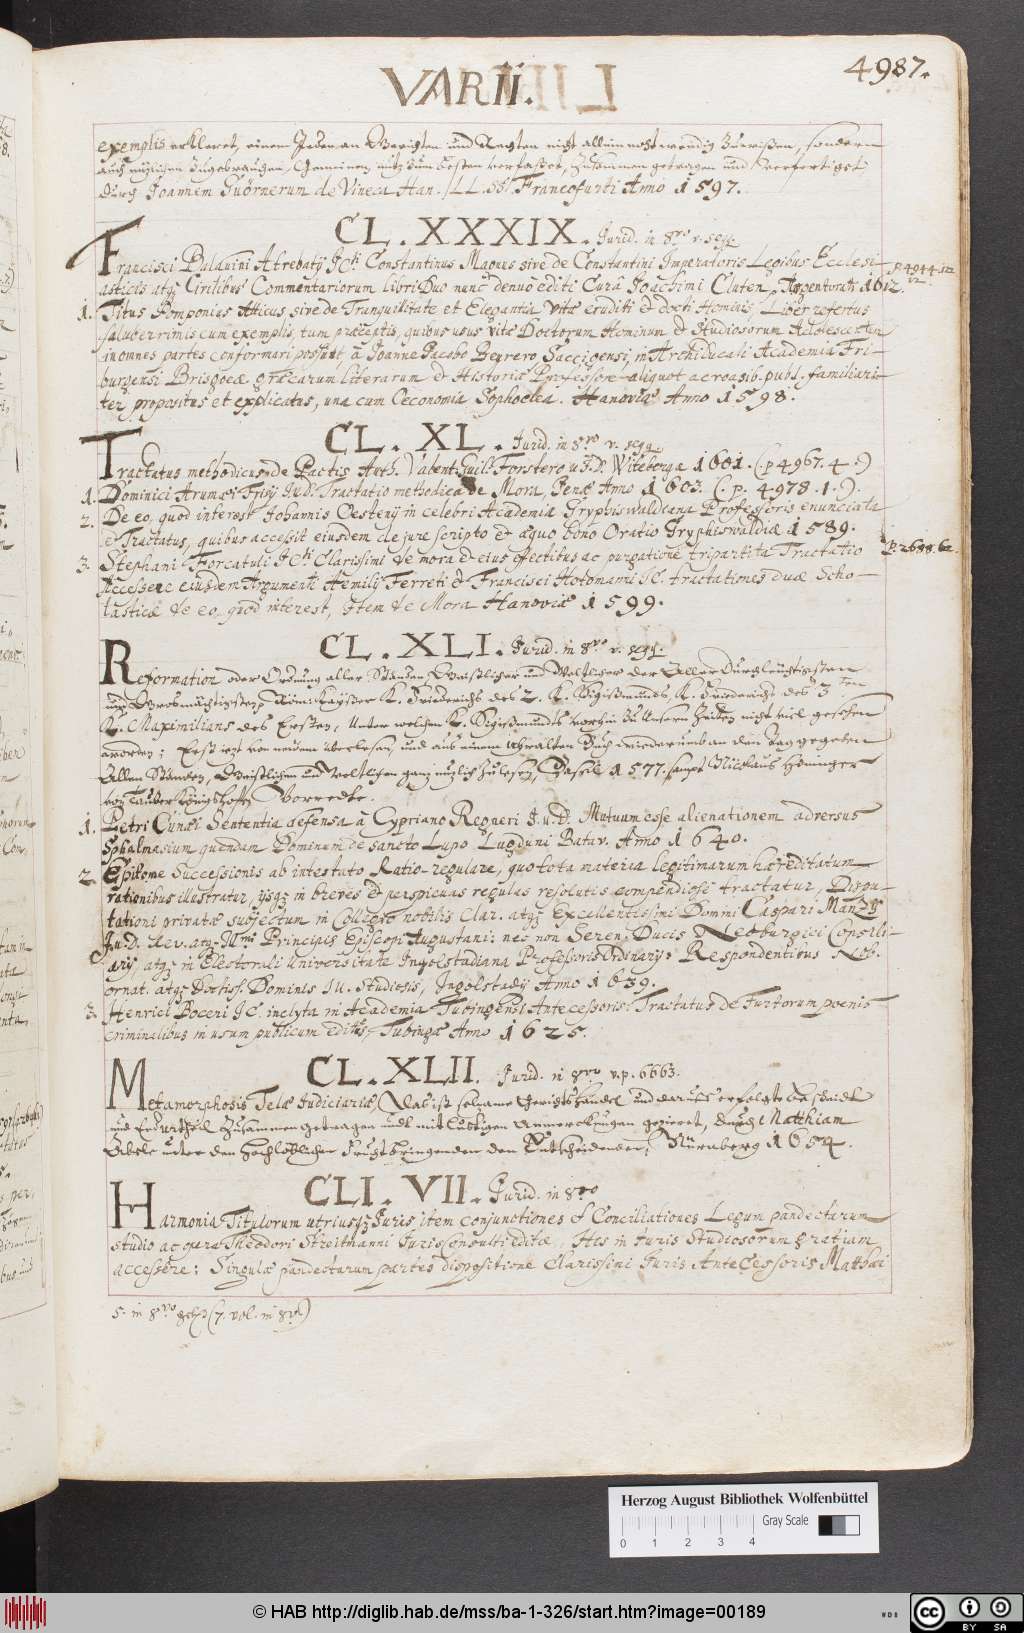 VARII.
4987.
exemplis erkleret, einem Jeden an Gerichten und Rechten nicht allein nothwendig zuwissen, sondern
auch nüzlichen Zugebrauchen, Gemeinen nütz zum besten verfasset, Zusammen getragen und verfertiget
durch Joannem Guörnerum de Vineca Han. LL. ss. Francofurti Anno 1597.
CL. XXXIX. Jurid. in 8ro v. seqq.
Francisci Balduini Atrebatij JCti Constantinus Magnus sive de Constantini Imperatoris Legibus Ecclesi-
asticis atq; Civilibus Commentariorum libri Duo nunc denuò editi Curâ Joachimi Cluten, Argentorati 1612.
p. 4944.
1. Titus Pomponius Atticus, sive de Tranquillitate et Elegantiâ Vitæ eruditi et docti Hominis, Liber refertus
saluberrimis cum exemplis, tum præceptis, quibus usus vitæ Doctorum Hominum & Studiosorum Adolescentum
in omnes partes conformari possunt, à Joanne Jacobo Beurero, Saccigensi, in Archiducali Academia Fri-
burgensi Brisgoeæ græcarum literarum & Historiæ Professore aliquot acroasib. publ. familiari-
ter propositus et explicatus, una cum Oeconomia Sophoclea. Hanoviæ Anno 1598.
CL. XL. Jurid. in 8ro v. seqq.
Tractatus methodicus, de Pactis Auth. Valent: Guil: Forstero u.J.D. Witebergæ 1601. (p 4967. 4.)
1. Dominici Arumæi Frisij Ju.D. Tractatio methodica de Mora, Jenæ Anno 1603. (. p. 4978. 1.).
2. De eo, quod interest Johannis Oestenij in celebri Academia Gryphiswaldeana Professoris enunciata
& Tractatus, quibus accessit eiusdem de jure scripto et æquo bono Oratio Gryphiswaldiæ 1589.
3. Stephani Forcatuli JCti Clarissimi de mora & eius effectibus ac purgatione tripartita Tractatio
p. 2698. 62.
Accessere eiusdem Argumenti Aemilij Ferreti & Francisci Hotomanni JC. tractationes duæ Scho-
lasticæ de eo, quod interest, Item de Mora Hanoviæ 1599.
CL. XLI. Jurid. in 8vo v. seqq.
Reformation oder Ordnung aller Ständen, Geistlicher und Weltlicher der Aller Durchleüchtigsten
und Grosmächtigsten, Römi. Kayser K. Friederichs des 2. K. Sigißmunds, K. Friederichs des 3ten
K. Maximilians des Ersten, Unter welchen K. Sigißmunds vorhin zu unsern Zeiten nicht viel gesehen
worden; Erst ietzt von neuem überlesen, und aus einem uhralten Buch wiederumb an den Tag gegeben
Allen Ständen, Geistlichen und Weltlichen gantz nuzlich Zulesen, Basell 1577. sampt Nicklaus Höninger
von Tauber Königshoffen Vorredte.
1. Petri Cunæi Sententia defensa à Cypriano Regneri J.u.D. Mutuum esse alienationem adversus
Sphalmasium quendam Dominum de sancto Lupo Lugduni Batav. Anno 1640.
2. Epitome Successionis ab intestato Ratio-regulare, quo tota materia legitimarum hæreditatum
rationibus illustratur, ijsq; in breves & perspicuas regulas resolutis compendiosè tractatur, Dispu-
tationi privatæ subjectum in Collegio nobilis Clar. atq; Excellentissimi Domini Caspari Manzij
Ju.D. Rev. atq. Illmi Principis Episcopi Augustani; nec non Seren: Ducis Neoburgici Consili-
arij, atq; in Electorali Universitate Ingolstadiana Professoris Ordinarij; Respondentibus Nob.
ornat. atq; Doctiss. Dominis JU. Studiosis, Ingolstadij Anno 1639.
3. Henrici Boceri JC. inclyta in Academia Tubingensi Antecessoris, Tractatus de Furtorum poenis
criminalibus in usum publicum editus, Tubingæ Anno 1625.
CL. XLII. Jurid. in 8vo v. p. 6663.
Metamorphosis Telæ Judiciariæ, Das ist selzame Gerichtshändel und darauf erfolgte bescheidt
und Endurtheil zusammen getragen undt mit lustigen Anmerckungen gezieret, durch Matthiam
Abele unter den hochlöblichen Fruchtbringenden den Entscheidenden, Nürnberg 1654.
CLI. VII. Jurid. in 8vo
Harmonia Titulorum utriusq; Juris, item conjunctiones & Conciliationes Legum pandectarum
studio ac opera Theodori Streithanni Jurisconsulti editæ, His in Juris Studiosorum gratiam
accessêre: Singulæ pandectarum partes dispositione Clarissimi Juris AnteCessoris Matthæi
Herzog August Bibliothek Wolfenbüttel
Gray Scale
0 1 2 3 4
© HAB http://diglib.hab.de/mss/ba-1-326/start.htm?image=00189
cc BY SA